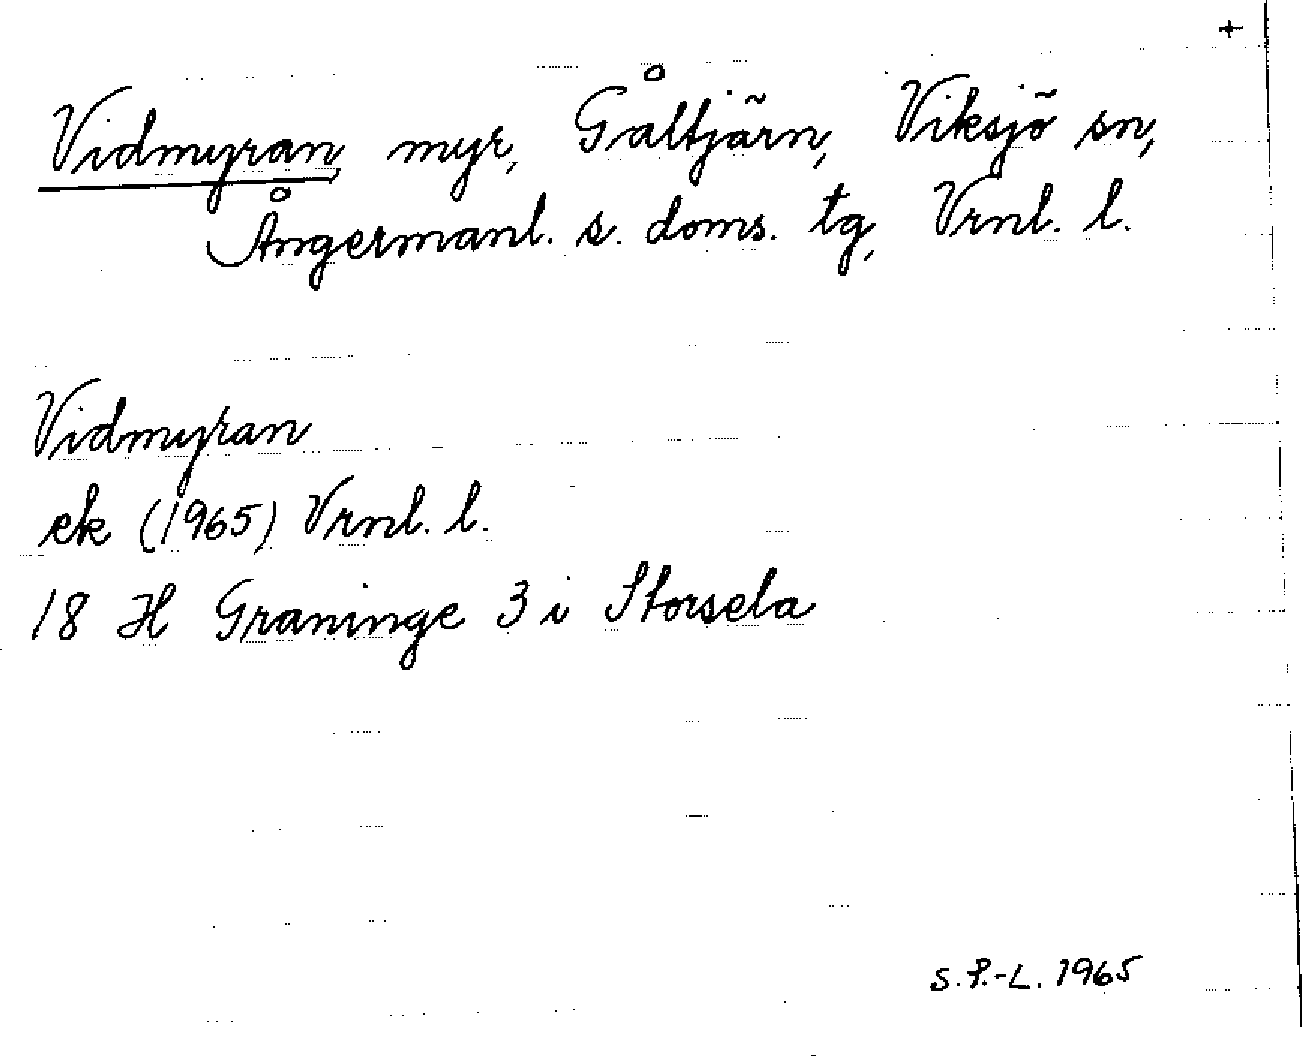 +
Vidmyran, myr, Gåltjärn, Viksjö sn,
Ångermanl. s. doms. tg, Vrnl. l.
Vidmyran
ek (1965) Vrnl. l.
18 H Graninge 3 i Storsela
S.P.-L. 1965